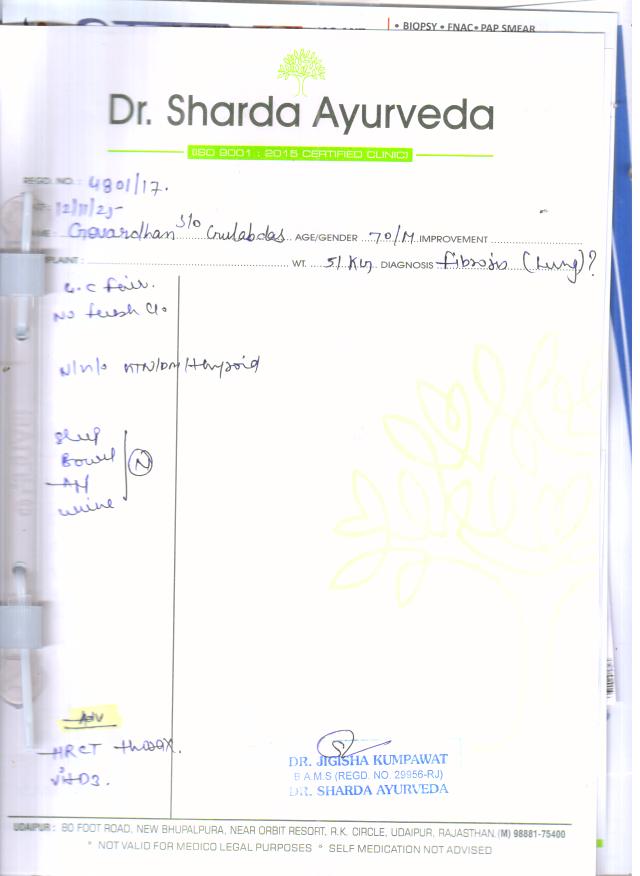 • BIOPSY • FNAC • PAP SMEAR
Dr. Sharda Ayurveda
(ISO 9001 : 2015 CERTIFIED CLINIC)
REGD. NO. : 4801/17.
12/11/25
Govardhan S/o Gulabdas AGE/GENDER 70/M IMPROVEMENT
WT. 51 Kg DIAGNOSIS fibrosis (Lung)?
G.C fair.
No fresh C/o
N/H/O HTN/DM/Thyroid
Sleep
Bowel
urine
N
Adv
HRCT thorax.
Vit D3.
DR. JIGISHA KUMPAWAT
B A M S (REGD. NO. 29956-RJ)
DR. SHARDA AYURVEDA
UDAIPUR : 80 FOOT ROAD, NEW BHUPALPURA, NEAR ORBIT RESORT, R.K. CIRCLE, UDAIPUR, RAJASTHAN, (M) 98881-75400
* NOT VALID FOR MEDICO LEGAL PURPOSES * SELF MEDICATION NOT ADVISED